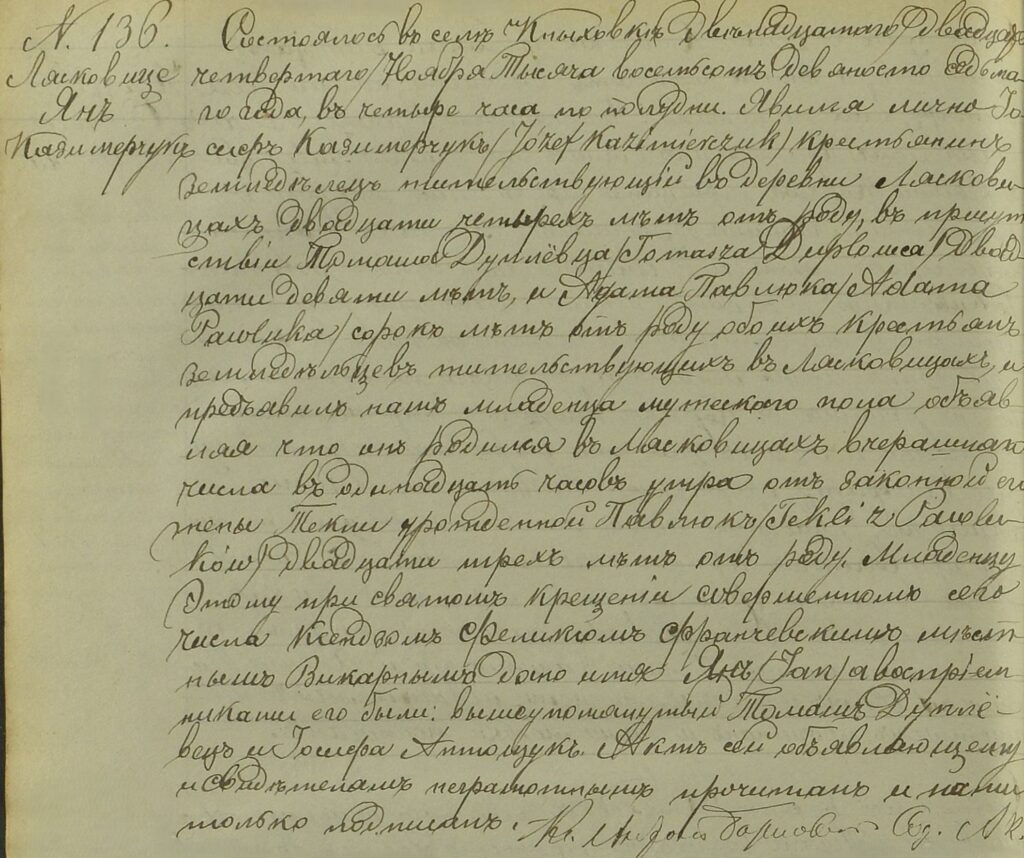 N. 136. Состоялось въ селѣ Кныховкѣ двѣнадцатаго/двадцать
Лясковице четвертаго/Ноября Тысяча восемьсотъ девяносто седьма-
Янъ го года, въ четыре часа по полудни. Явился лично Iо-
Казимерчукъ сефъ Казимерчукъ/Józef Kazimierczuk/крестьянинъ
земледѣлецъ жительствующiй въ деревни Лясковы-
цахъ двадцати четырехъ лѣтъ отъ роду, въ присут-
ствiи Томаша Дуплёвца/Tomasza /Двад-
цати девяти лѣтъ, и Адама Павлюка/Adama
Pawluka/сорокъ лѣтъ отъ роду обоихъ крестьянъ
земледѣльцевъ жительствующихъ въ Лясковицахъ, и
предъявилъ намъ младенца мужескаго пола объяв-
ляя что онъ родился въ Лясковицахъ вчерашняго
числа въ одинадцать часовъ утра отъ законной его
жены Текли урожденной Павлюкъ/Tekli z Pawlu-
ków/двадцати трехъ лѣтъ отъ роду. Младенцу
Этому при святомъ крещенiи совершенномъ сего
числа Ксендзомъ Феликсомъ Франчевскимъ мѣст-
нымъ Викарнымъ дано имя Янъ/Jan/а воспрiем-
никами его были: вышеупомянутый Томашъ Дуплё-
вецъ и Iосефа Антощукъ. Актъ сей объявляющему
и свидѣтелямъ неграмотнымъ прочитанъ и нами
только подписанъ.